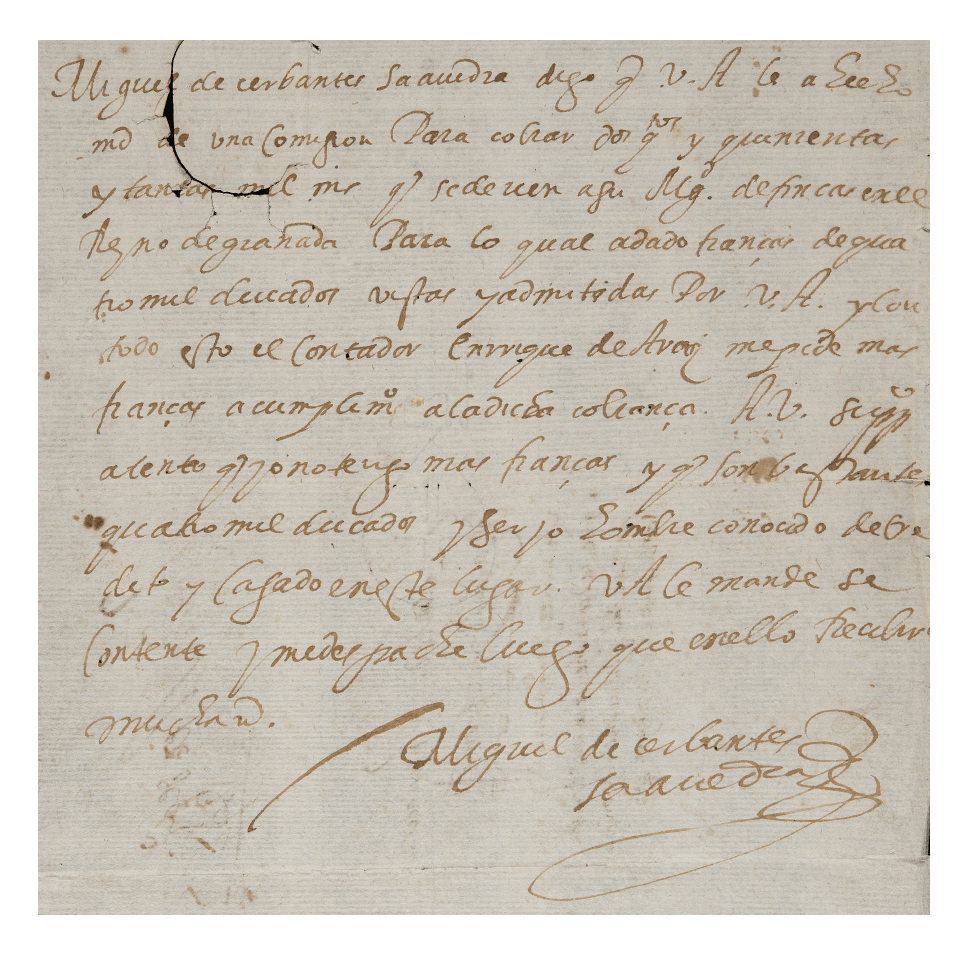 Miguel de cerbantes Saavedra digo q̃ V. A le a hecho
md de una Comision Para cobrar dos qtos y quinientas
y tantas mil mrs q̃ se deven a su Mgd. de fincas en el
Reyno de granada Para lo qual a dado fianças de qua
tro mil ducados vistas y admitidas Por V. A. y con
todo esto el Contador Enrrique de Araiz me pide mas
fianças a cumplimo a la dicha cobrança. A. V. Suppco
atento q̃ yo no tengo mas fianças y q̃ son bastante
quatro mil ducados y ser yo hombre conocido de cre
dito y Casado en este lugar. V A le mande se
Contente y me despache luego que en ello Recibire
mucha md.
Miguel de cerbantes
saavedra